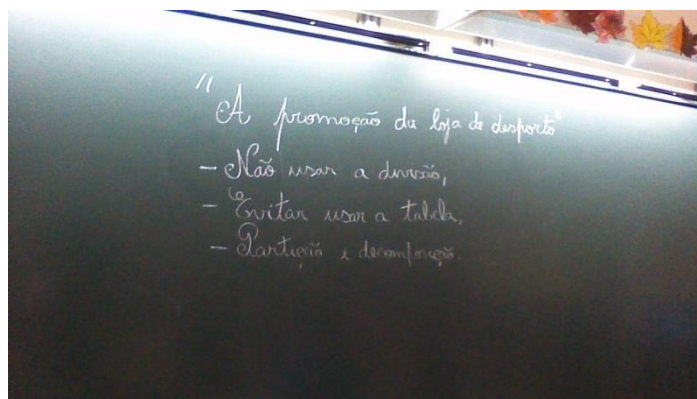 "A promoção da loja de desporto"
- Não usar a divisão,
- Evitar usar a tabela,
- Partição e decomposição.